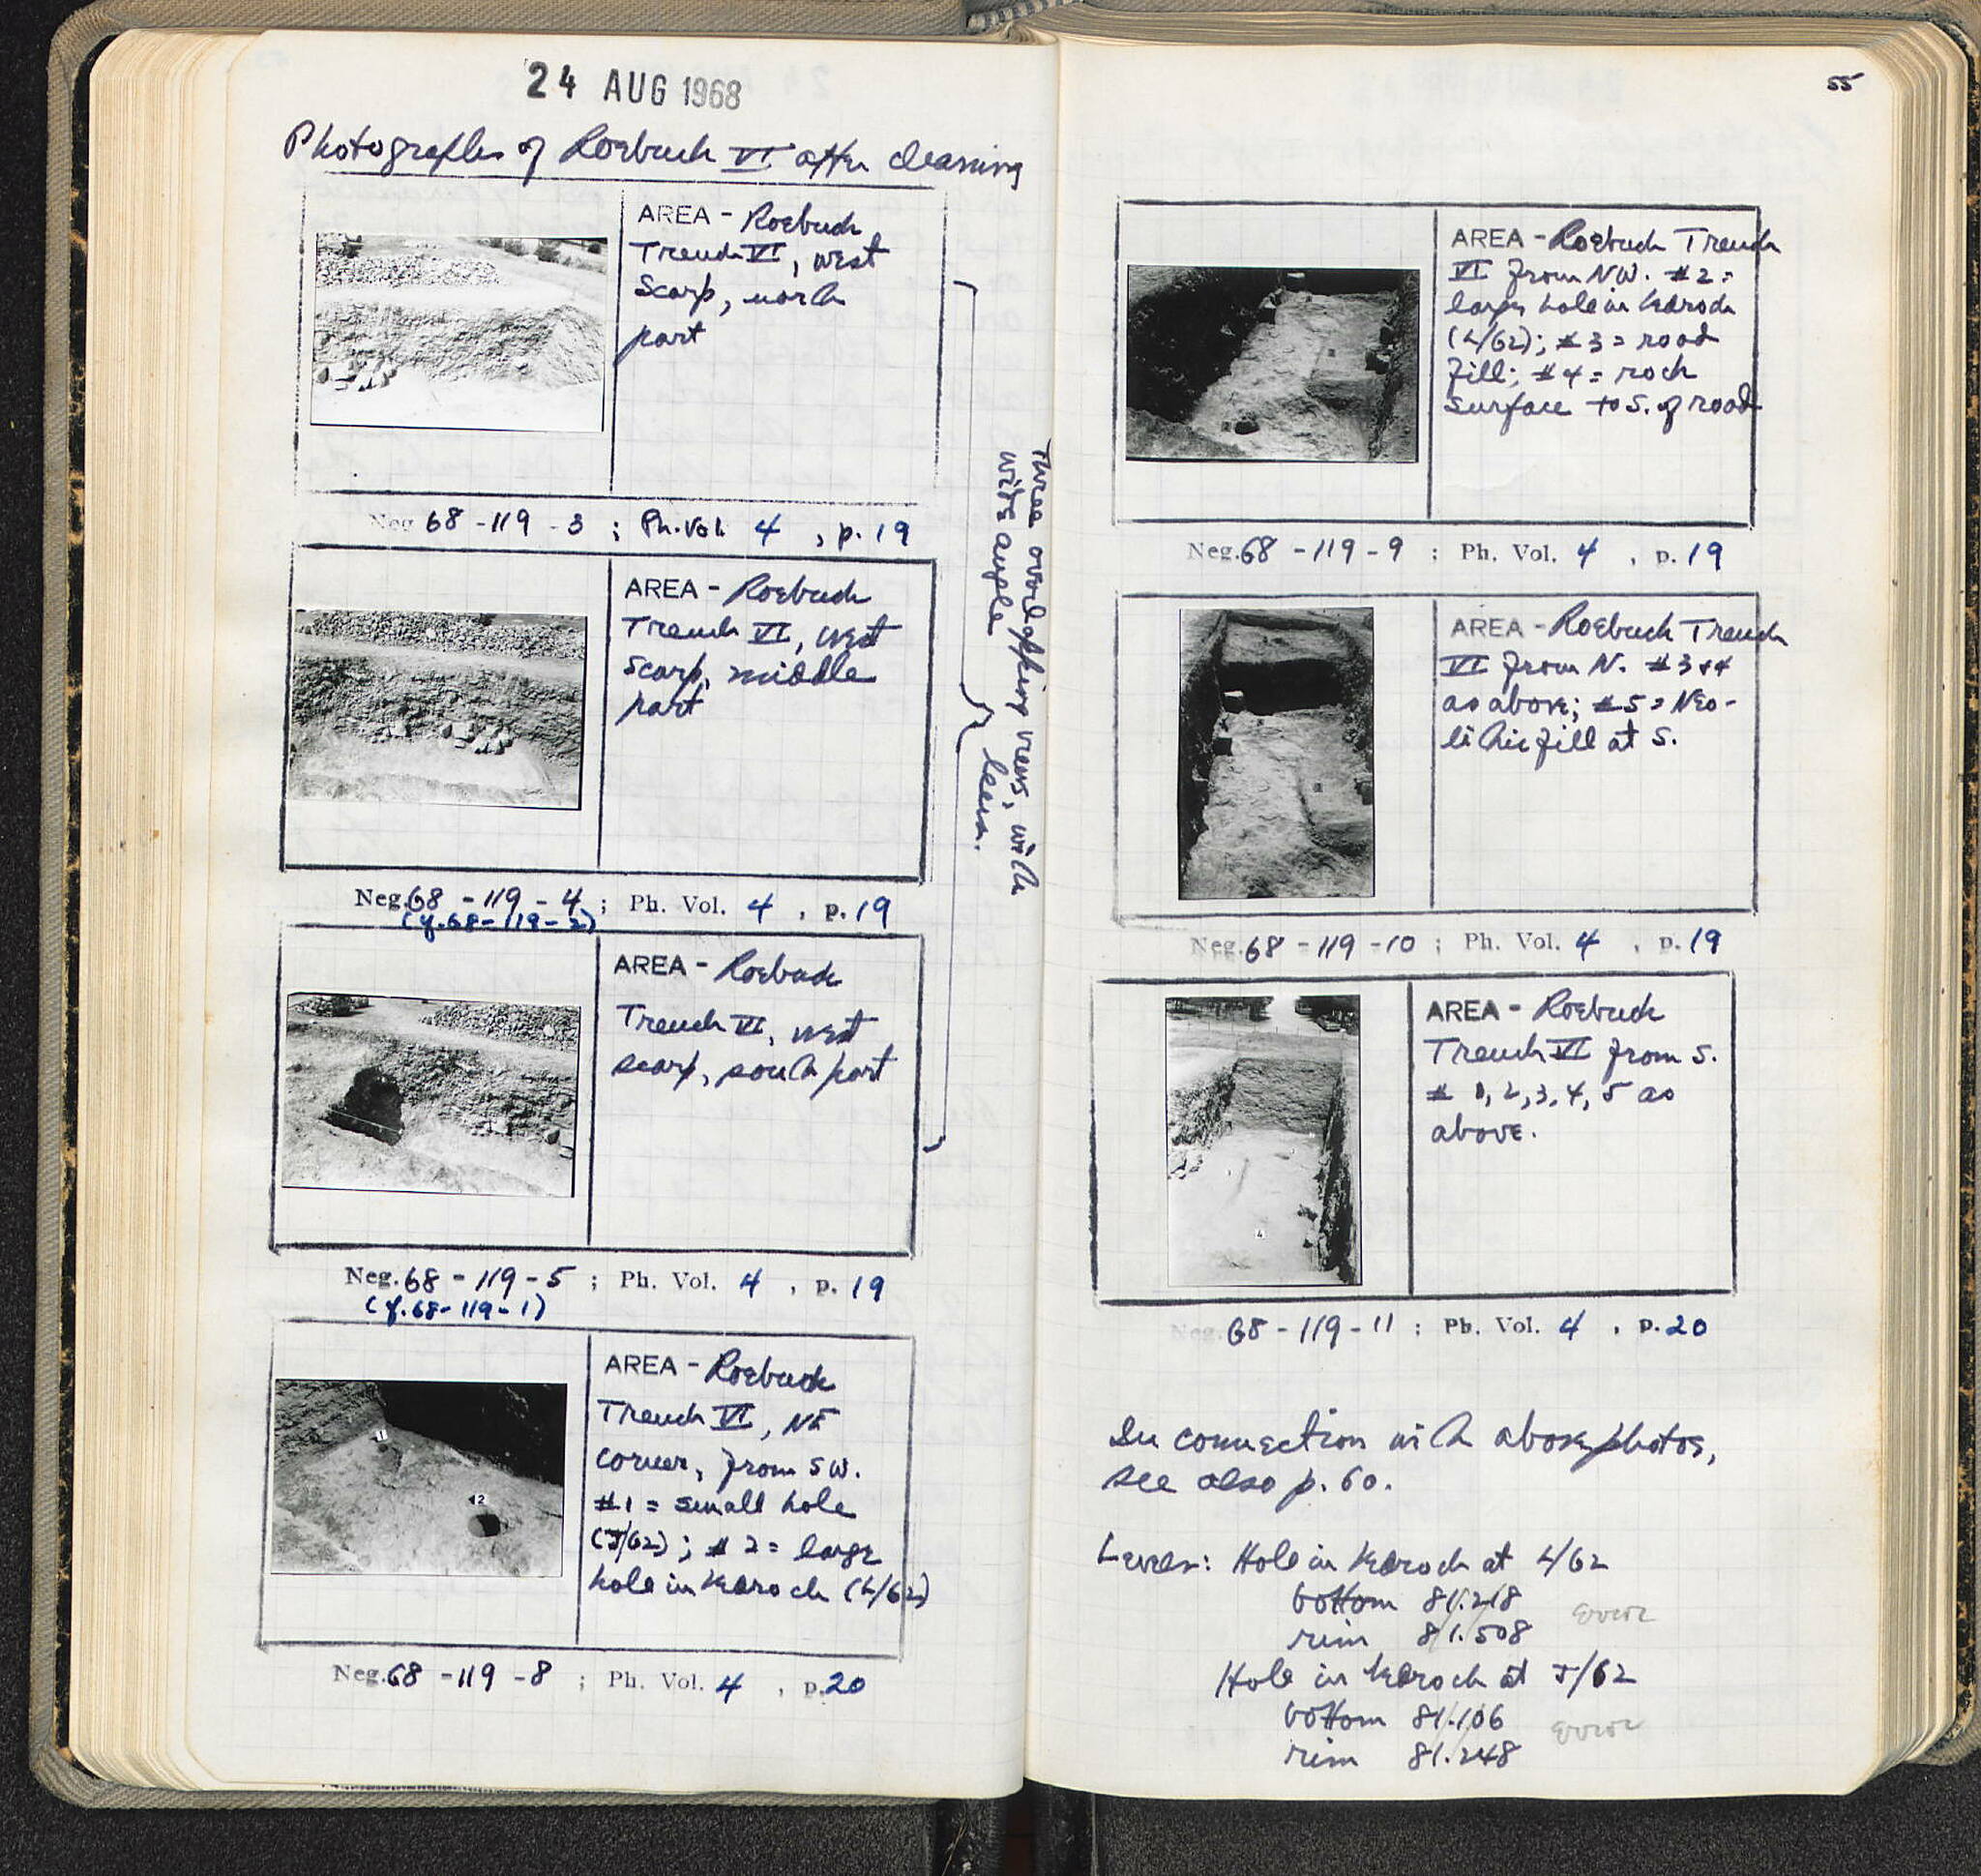 24 AUG 1968
Photographs of Roebuck VI after cleaning
AREA - Roebuck
Trench VI, west
Scarp, north
part
Neg 68 - 119 - 3 ; Ph. Vol. 4 , p. 19
AREA - Roebuck
Trench VI, west
scarp, middle
part
Neg. 68 - 119 - 4 ; Ph. Vol. 4 , p. 19
(cf. 68-119-2)
AREA - Roebuck
Trench VI, west
scarp, south part
Neg. 68 - 119 - 5 ; Ph. Vol. 4 , p. 19
(cf. 68-119-1)
Three overlapping views, with
wide angle lens.
AREA - Roebuck
Trench VI, NE
corner, from SW.
#1 = small hole
(J/62); #2 = large
hole in bedrock (L/62)
Neg. 68 - 119 - 8 ; Ph. Vol. 4 , p. 20
55
AREA - Roebuck Trench
VI from NW. #2 =
large hole in bedrock
(L/62); #3 = road
fill; #4 = rock
surface to S. of road
Neg. 68 - 119 - 9 ; Ph. Vol. 4 , p. 19
AREA - Roebuck Trench
VI from N. #3+4
as above; #5 = Neo-
lithic fill at S.
Neg. 68 - 119 - 10 ; Ph. Vol. 4 , p. 19
AREA - Roebuck
Trench VI from S.
# 1, 2, 3, 4, 5 as
above.
Neg. 68 - 119 - 11 ; Ph. Vol. 4 , p. 20
In connection with above photos,
see also p. 60.
Levels: Hole in bedrock at L/62
bottom 81.218
error
rim 81.508
Hole in bedrock at J/62
bottom 81.106
error
rim 81.248
1
2
4